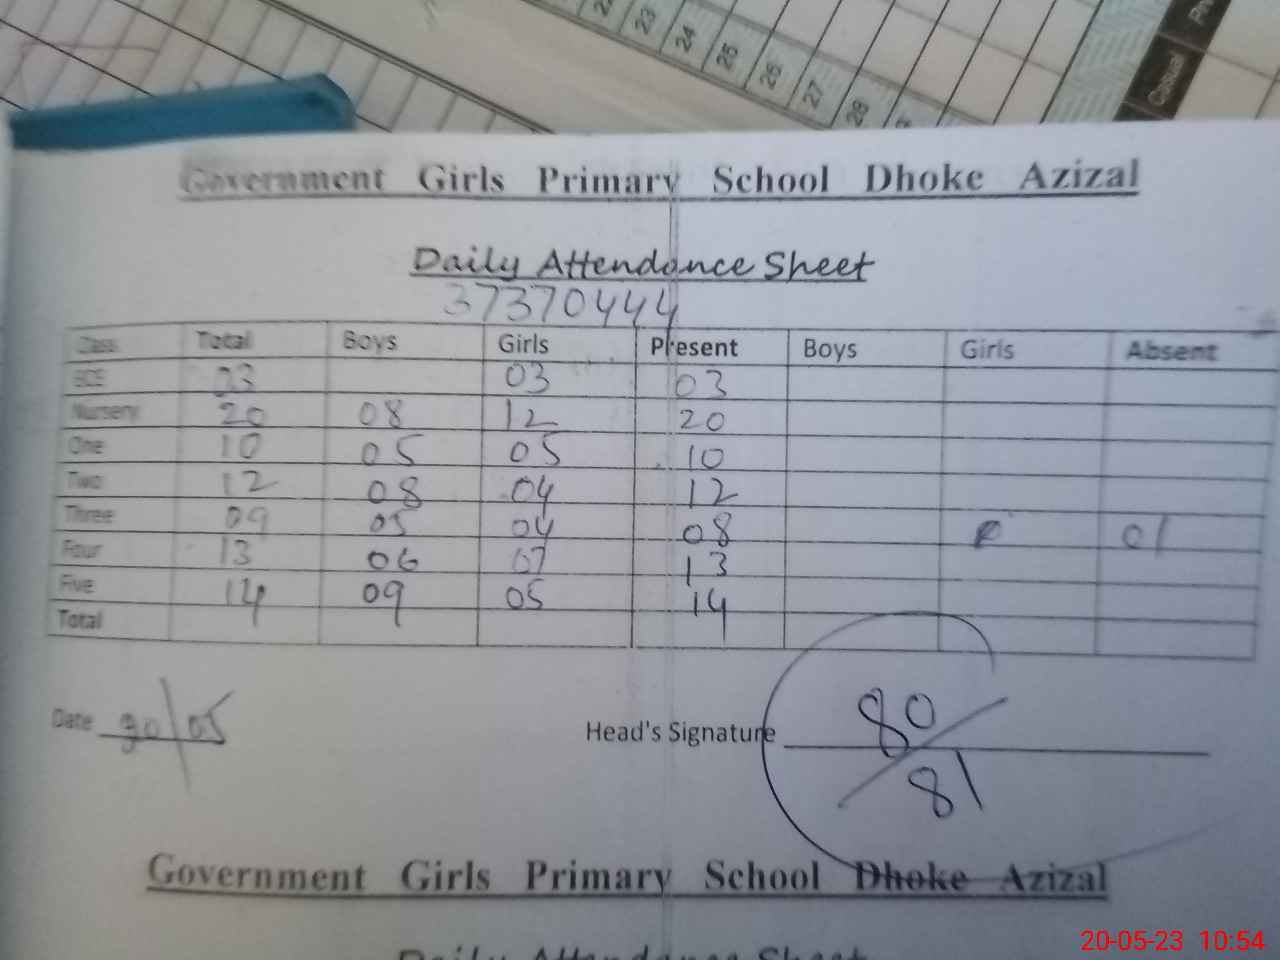 22
23
24
25
26
27
28
Casual
Government Girls Primary School Dhoke Azizal
Daily Attendance Sheet
37370444
Class Total Boys Girls Present Boys Girls Absent
ECE 03 03 03
Nursery 20 08 12 20
One 10 05 05 10
Two 12 08 04 12
Three 09 05 04 08 01
Four 13 06 07 13
Five 14 09 05 14
Total
Date 20/05 Head's Signature 80/81
Government Girls Primary School Dhoke Azizal
Daily Attendance Sheet
20-05-23 10:54